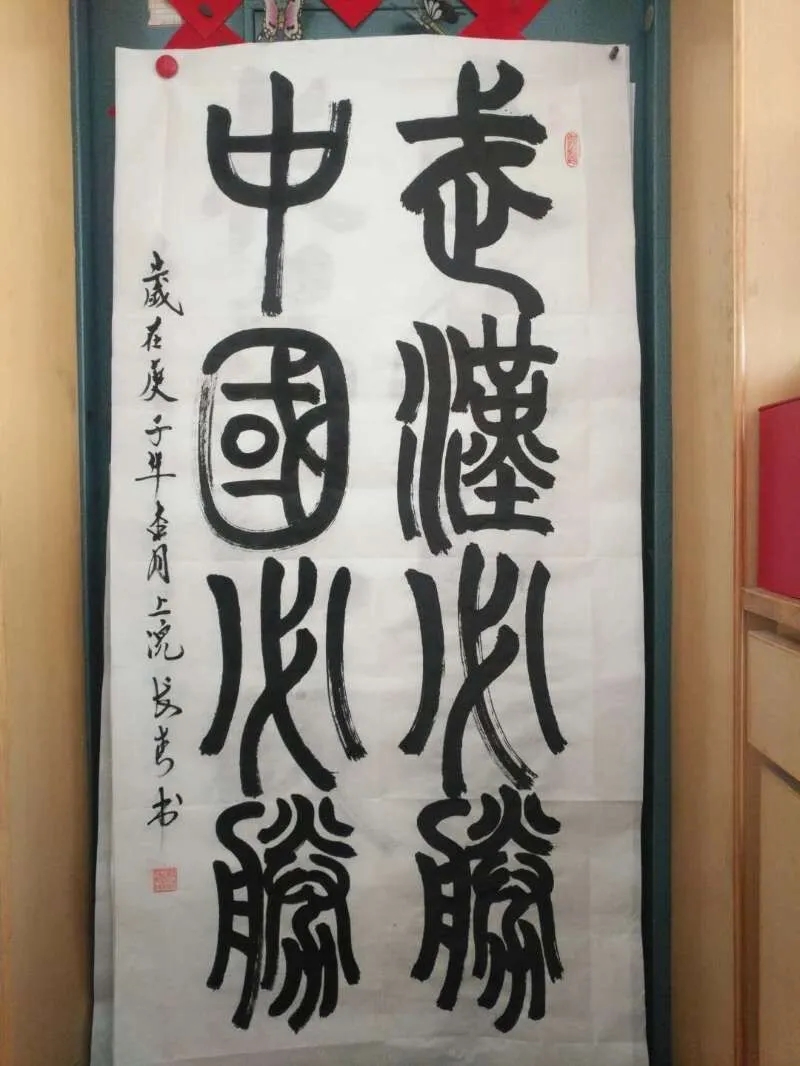 武漢必勝
中國必勝
歲在庚子年杏月上浣長青书